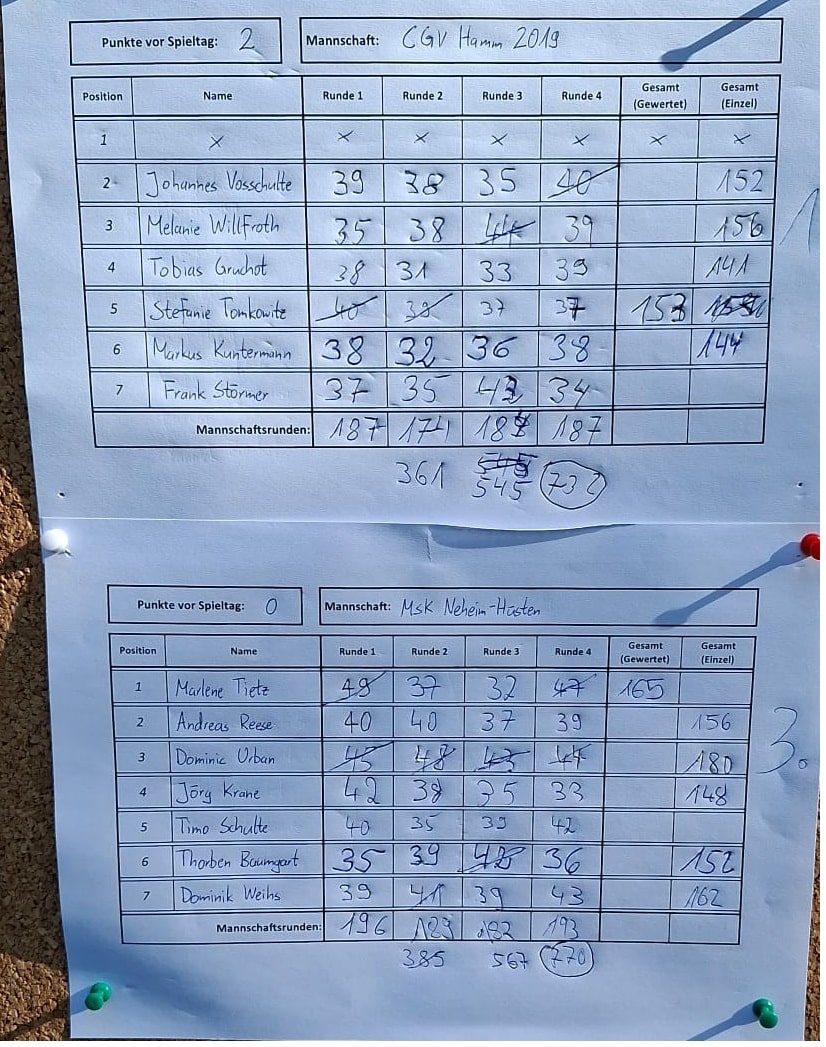 Punkte vor Spieltag: 2 Mannschaft: CGV Hamm 2019
Position Name Runde 1 Runde 2 Runde 3 Runde 4 Gesamt (Gewertet) Gesamt (Einzel)
1 x x x x x x x
2 Johannes Vosschulte 39 38 35 40 152
3 Melanie Willfroth 35 38 44 39 156
4 Tobias Gruchot 38 31 33 39 141
5 Stefanie Tomkowitz 40 39 37 37 153
6 Markus Kuntermann 38 32 36 38 144
7 Frank Störmer 37 35 43 34
Mannschaftsrunden: 187 174 184 187
361 545 732
1
Punkte vor Spieltag: 0 Mannschaft: MSK Neheim-Hüsten
Position Name Runde 1 Runde 2 Runde 3 Runde 4 Gesamt (Gewertet) Gesamt (Einzel)
1 Marlene Tietz 49 37 32 47 165
2 Andreas Reese 40 40 37 39 156
3 Dominic Urban 45 48 43 44 180
4 Jörg Krane 42 38 35 33 148
5 Timo Schulte 40 35 39 42
6 Thorben Baumgart 35 39 42 36 152
7 Dominik Weihs 39 41 39 43 162
Mannschaftsrunden: 196 189 182 193
385 567 770
3.